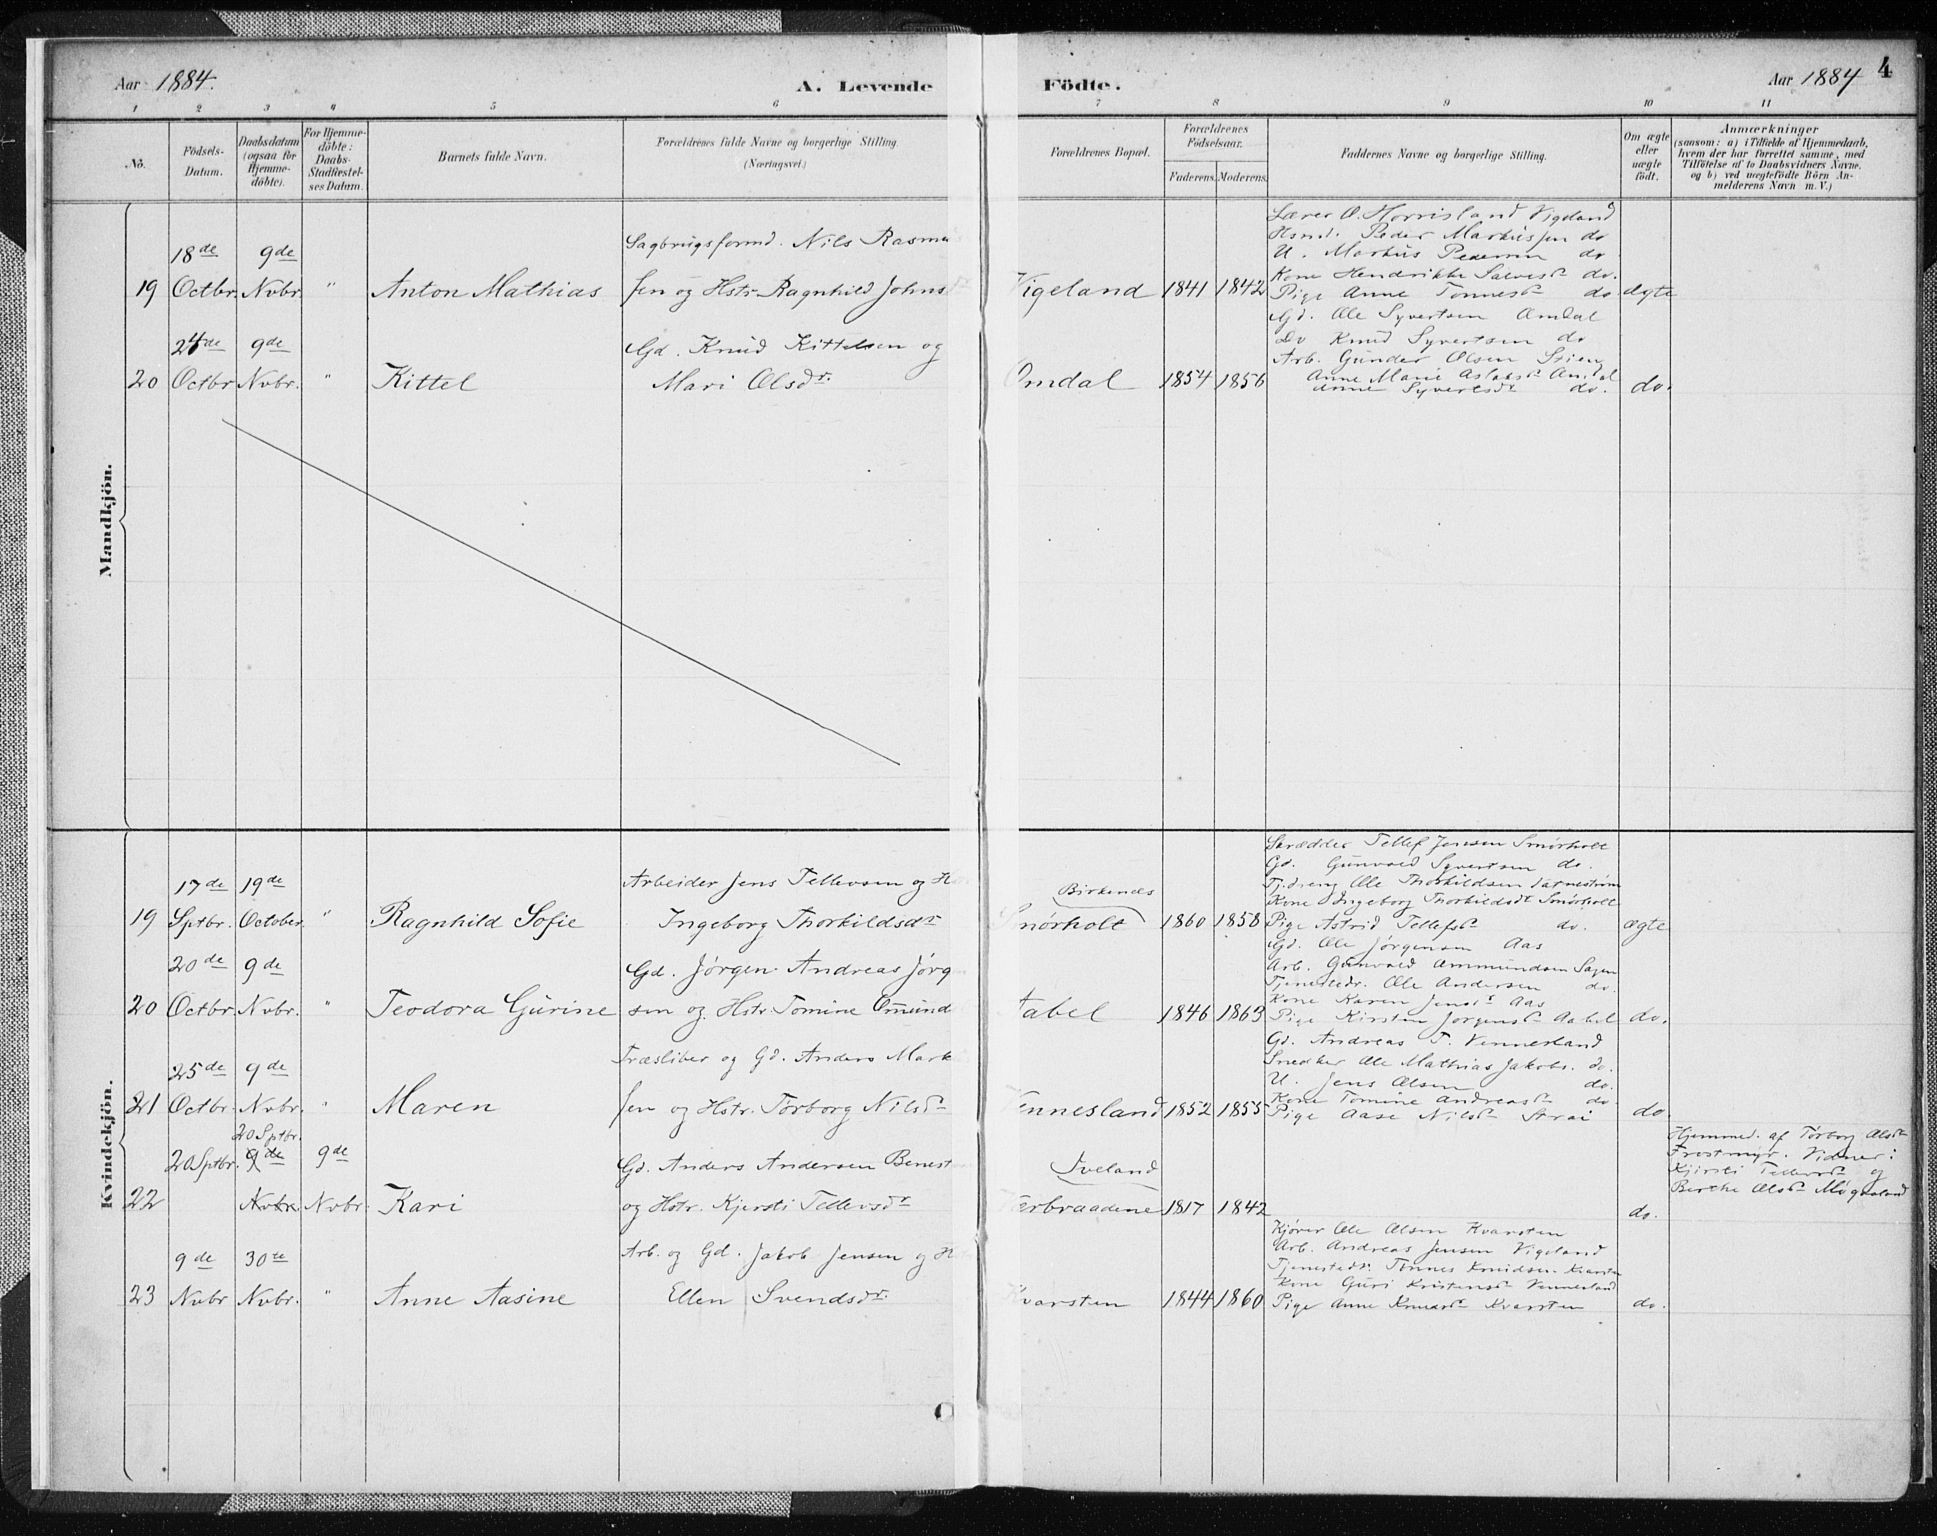 Aar 1884.
A. Levende Födte.
Aar 1884
4
1 2 3 4 5 6 7 8 9 10 11
No.
Födsels-Datum.
Daabsdatum (ogsaa for Hjemme-döbte).
For Hjemme-döbte: Daabs-Stadfæstel-ses Datum.
Barnets fulde Navn.
Forældrenes fulde Navne og borgerlige Stilling. (Næringsvei.)
Forældrenes Bopæl.
Forældrenes Födselsaar.
Faderens. Moderens.
Faddernes Navne og borgerlige Stilling.
Om ægte eller uægte födt.
Anmærkninger
(saasom: a) i Tilfælde af Hjemmedaab, hvem der har forrettet samme, med Tilföielse af to Daabsvidners Navne, og b) ved uægtefödte Börn An-melderens Navn m. V.)
Mandkjön.
19
18de Octbr.
9de Nvbr.
"
Anton Mathias
Sagbrugsformd. Nils Rasmus
sen og Hstr. Ragnhild Johns
Vigeland
1841
1842
Lærer O. Horrisland Vigeland
Hsmd. Peder Markussen do
U. Markus Pedersen do
Kone Hendrikke Salvesd. do.
Pige Anne Tønnesd. do
ægte
20
24de Octbr
9de Nvbr.
"
Kittel
Gd. Knud Kittelsen og
Mari Olsdr.
Omdal
1854
1856
Gd. Ole Syvertsen Omdal
Do Knud Syvertsen do
Arb. Gunder Olsen Stien
Anne Marie Aslaksd. Omdal
Anne Syvertsdr do.
do.
Kvindekjön.
19
17de Sptbr.
19de October
"
Ragnhild Sofie
Arbeider Jens Tellevsen og H
Ingeborg Thorkildsdr
Birkenæs
Smörholt
1860
1858
Skrædder Tellef Jensen Smörholt
Gd. Gunvald Syvertsen do.
Tj.dreng Ole Thorkildsen
Kone Ingeborg Thorkildsdt Smörholt
Pige Astrid Tellefsd. do.
ægte
20
20de Octbr
9de Nvbr.
"
Teodora Gurine
Gd. Jørgen Andreas Jørg
sen og Hstr. Tomine Omund
Aabel
1846
1863
Gd. Ole Jørgensen Aas
Arb. Gunvald Ommundsen Sagen
Tjenestedr. Ole Andersen do.
Kone Karen Jensdr Aas
Pige Kirsten Jørgensd. Aabel
do.
21
25de Octbr.
9de Nvbr.
"
Maren
Træsliber og Gd. Anders Mark
sen og Hstr. Torborg Nilsd.
Vennesland
1852
1855
Gd. Andreas T. Vennesland
Snedker Ole Mathias Jakobs. do.
U. Jens Olsen do.
Kone Tomine Andreasd. do.
Pige Aase Nilsd. Strai
do.
22
20 Sptbr.
20 Sptbr.
9de Nvbr.
9de Nvbr.
Kari
Gd. Anders Andersen Benest
og Hstr. Kjersti Tellevsdr
Iveland
1817
1842
do.
Hjemmed. af Torborg Olsd.
Frostmyr. Vidner:
Kjersti Tellevsd. og
Berthe Olsd.
23
9de Nvbr
30te Nvbr.
"
Anne Aasine
Arb. og Gd. Jakob Jensen og H
Ellen Svendsdr.
Kvarsten
1844
1860
Kjører Ole Olsen Kvarsten
Arb. Andreas Jensen Vigeland
Tjenestedr. Tønnes Knudsen Kvarsten
Kone Guri Kristensd. Vennesland
Pige Anne Knudsd. Kvarsten
do.